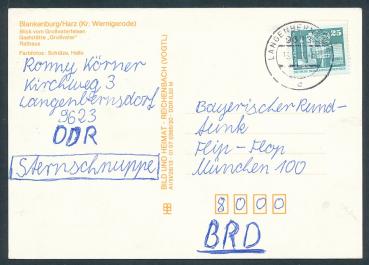 Blankenburg/Harz (Kr. Wernigerode)
Blick vom Großvaterfelsen
Gaststätte „Großvater“
Rathaus
Farbfotos: Schütze, Halle
Ronny Körner
Kirchweg 3
Langenbernsdorf
9623
DDR
Sternschnuppe
BILD UND HEIMAT · REICHENBACH (VOGTL)
LANGENBER
25
Bayerischer Rund-
funk
Flip-Flop
München 100
8000
BRD